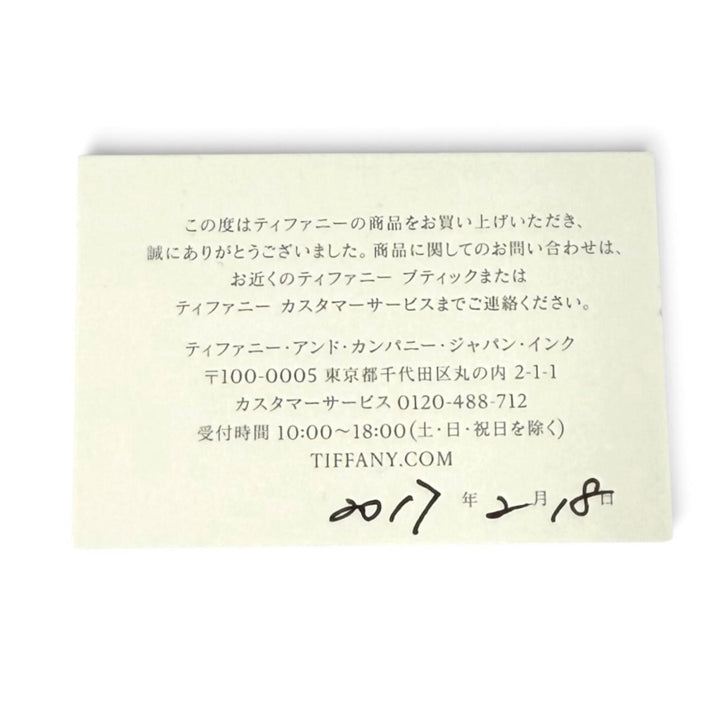 この度はティファニーの商品をお買い上げいただき、
誠にありがとうございました。商品に関してのお問い合わせは、
お近くのティファニー ブティックまたは
ティファニー カスタマーサービスまでご連絡ください。
ティファニー・アンド・カンパニー・ジャパン・インク
〒100-0005 東京都千代田区丸の内 2-1-1
カスタマーサービス 0120-488-712
受付時間 10:00～18:00(土・日・祝日を除く)
TIFFANY.COM
2017年2月18日